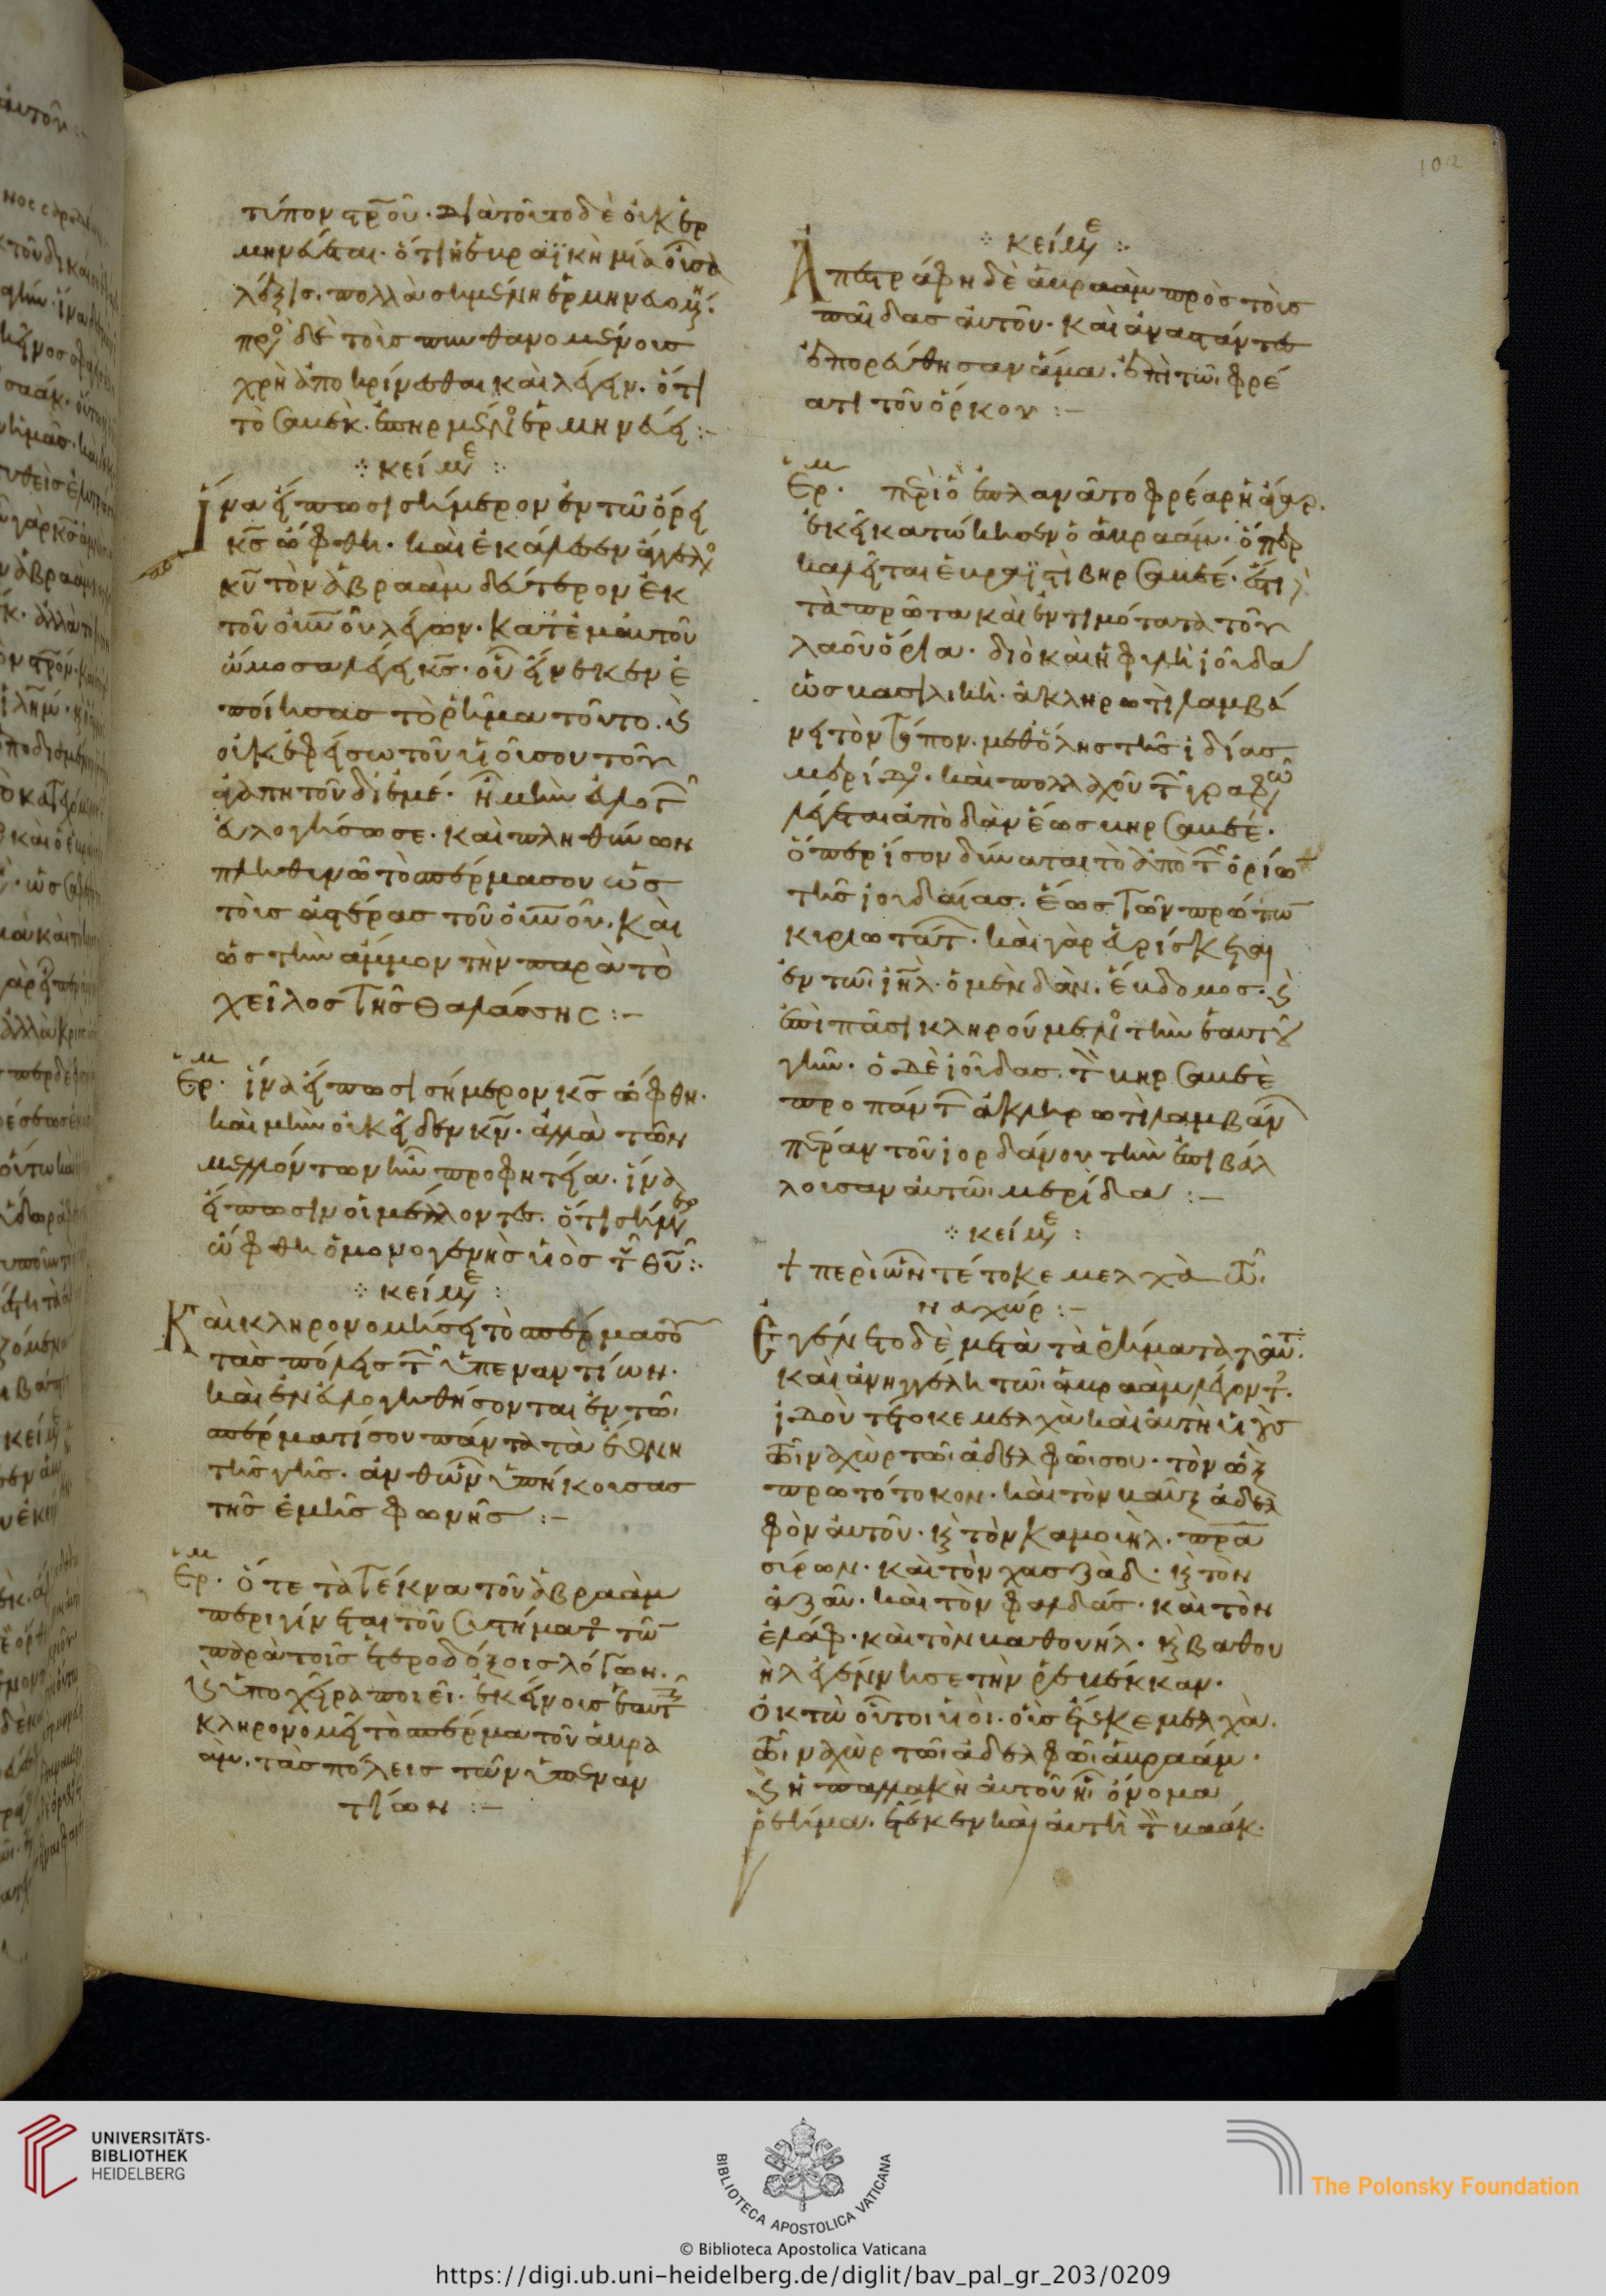 τύπον σ̅ρ̅ου. Διὰ τοῦτο δὲ οὐχ ἑρ
μηνεύεται. ὅτι ἡ ἑβραϊκὴ μία οὖσα
λέξις. πολλὰ σημαίνει ἑρμηνευομένη.
πρὸς δὲ τοὺς πυνθανομένους
χρὴ ἀποκρίνεσθαι καὶ λέγειν. ὅτι
τὸ σαβὲκ. ἐπηρμένος ἑρμηνεύει :-
κείμε
Ἵνα εἴπωσι σήμερον ἐν τῷ ὄρει
κ̅ς̅ ὤφθη. καὶ ἐκάλεσεν ἄγγελος
κ̅υ̅ τὸν ἀβραὰμ δεύτερον ἐκ
τοῦ οὐ̅ν̅οῦ λέγων. κατ' ἐμαυτοῦ
ὤμοσα λέγει κ̅ς̅. οὗ εἵνεκεν ἐ
ποίησας τὸ ῥῆμα τοῦτο. καὶ
οὐκ ἐφείσω τοῦ υἱοῦ σου τοῦ
ἀγαπητοῦ δι' ἐμέ. ἦ μὴν εὐλογῶν
εὐλογήσω σε. καὶ πληθύνων
πληθυνῶ τὸ σπέρμα σου ὡς
τοὺς ἀστέρας τοῦ οὐ̅ν̅οῦ. καὶ
ὡς τὴν ἄμμον τὴν παρὰ τὸ
χεῖλος τῆς θαλάσσης :-
Ερμ. ἵνα εἴπωσι σήμερον κ̅ς̅ ὤφθη.
καὶ μὴν οὐκ εἶδεν κ̅ν̅. ἀλλὰ τῶν
μελλόντων ἦν προφητεία. ἵνα
εἴπωσιν οἱ μέλλοντες. ὅτι σήμερον
ὤφθη ὁ μονογενὴς υἱὸς τοῦ θ̅υ̅ :
κείμε
Καὶ κληρονομήσει τὸ σπέρμα σου
τὰς πόλεις τῶν ὑπεναντίων.
καὶ ἐνευλογηθήσονται ἐν τῷ
σπέρματί σου πάντα τὰ ἔθνη
τῆς γῆς. ἀνθ' ὧν ὑπήκουσας
τῆς ἐμῆς φωνῆς :-
Ερμ. Ὅτε τὰ τέκνα τοῦ ἀβραὰμ
περιγίνεται τοῦ συστήματος τῶν
παρὰ τοῖς ἑτεροδόξοις λόγων.
καὶ ὑποχείρα ποιεῖ. ἐκείνους ἑαυτῶν
κληρονομεῖ τὸ σπέρμα τοῦ ἀβρα
ὰμ. τὰς πόλεις τῶν ὑπεναν
τίων :-
102
κείμε
Ἀπεστράφη δὲ ἀβραὰμ πρὸς τοὺς
παῖδας αὐτοῦ. καὶ ἀναστάντες
ἐπορεύθησαν ἅμα. ἐπὶ τῷ φρέ
ατι τοῦ ὅρκου :-
Ερμ. περὶ ὃ ἐπλανᾶτο φρέαρ ἡ ἄγαρ.
ἐκεῖ κατώκησεν ὁ ἀβραάμ. ὅπερ
καλεῖται ἑβραϊστὶ βηρσαβεέ. ἔστι
τὰ πρῶτα καὶ ἐντιμότατα τοῦ
λαοῦ ὅρια. διὸ καὶ ἡ φυλὴ ἰούδα
ὡς βασιλικὴ. ἀκληρωτὶ λαμβά
νει τὸν τόπον. μεθ' ὅλης τῆς ἰδίας
μερίδος. καὶ πολλαχοῦ τῶν γραφῶν
λέγεται ἀπὸ δὰν ἕως βηρσαβεέ.
ὅπερ ἴσον δύναται τὸ ἀπὸ τῶν ὁρίων
τῆς ἰουδαίας. ἕως τῶν πρώτων
κυριωτάτων. καὶ γὰρ εὑρίσκεται
ἐν τῷ ἰ̅η̅λ̅. ὁ μὲν δὰν. ἕβδομος. καὶ
ἐπὶ πᾶσι κληρούμενος τὴν ἑαυτοῦ
γῆν. ὁ δὲ ἰούδας. τὴν βηρσαβεὲ
πρὸ πάντων ἀκληρωτὶ λαμβάνει
πέραν τοῦ ἰορδάνου τὴν ἐπιβάλ
λουσαν αὐτῷ μερίδα :-
κείμε
+ περὶ ὧν τέτοκε μελχὰ τῷ
ναχώρ :-
Ἐγένετο δὲ μετὰ τὰ ῥήματα ταῦτα.
καὶ ἀνηγγέλη τῷ ἀβραὰμ λέγοντες.
ἰδοὺ τέτοκε μελχὰ καὶ αὐτὴ υἱοὺς
τῷ ναχὼρ τῷ ἀδελφῷ σου. τὸν ὢξ
πρωτότοκον. καὶ τὸν βαὺξ ἀδελ
φὸν αὐτοῦ. καὶ τὸν καμουὴλ. π̅ρ̅α̅
σύρων. καὶ τὸν χασζὰδ. καὶ τὸν
ἀζαῦ. καὶ τὸν φαλδάς. καὶ τὸν
ἐλάφ. καὶ τὸν βαθουήλ. καὶ βαθου
ὴλ ἐγέννησε τὴν ῥεβέκκαν.
ὀκτὼ οὗτοι υἱοὶ. οὓς ἔτεκε μελχὰ.
τῷ ναχὼρ τῷ ἀδελφῷ ἀβραάμ.
καὶ ἡ παλλακὴ αὐτοῦ ᾗ ὄνομα
ῥεήμα. ἔτεκεν καὶ αὐτὴ τὸν βαάκ.
UNIVERSITÄTS-
BIBLIOTHEK
HEIDELBERG
BIBLIOTECA APOSTOLICA VATICANA
The Polonsky Foundation
© Biblioteca Apostolica Vaticana
https://digi.ub.uni-heidelberg.de/diglit/bav_pal_gr_203/0209